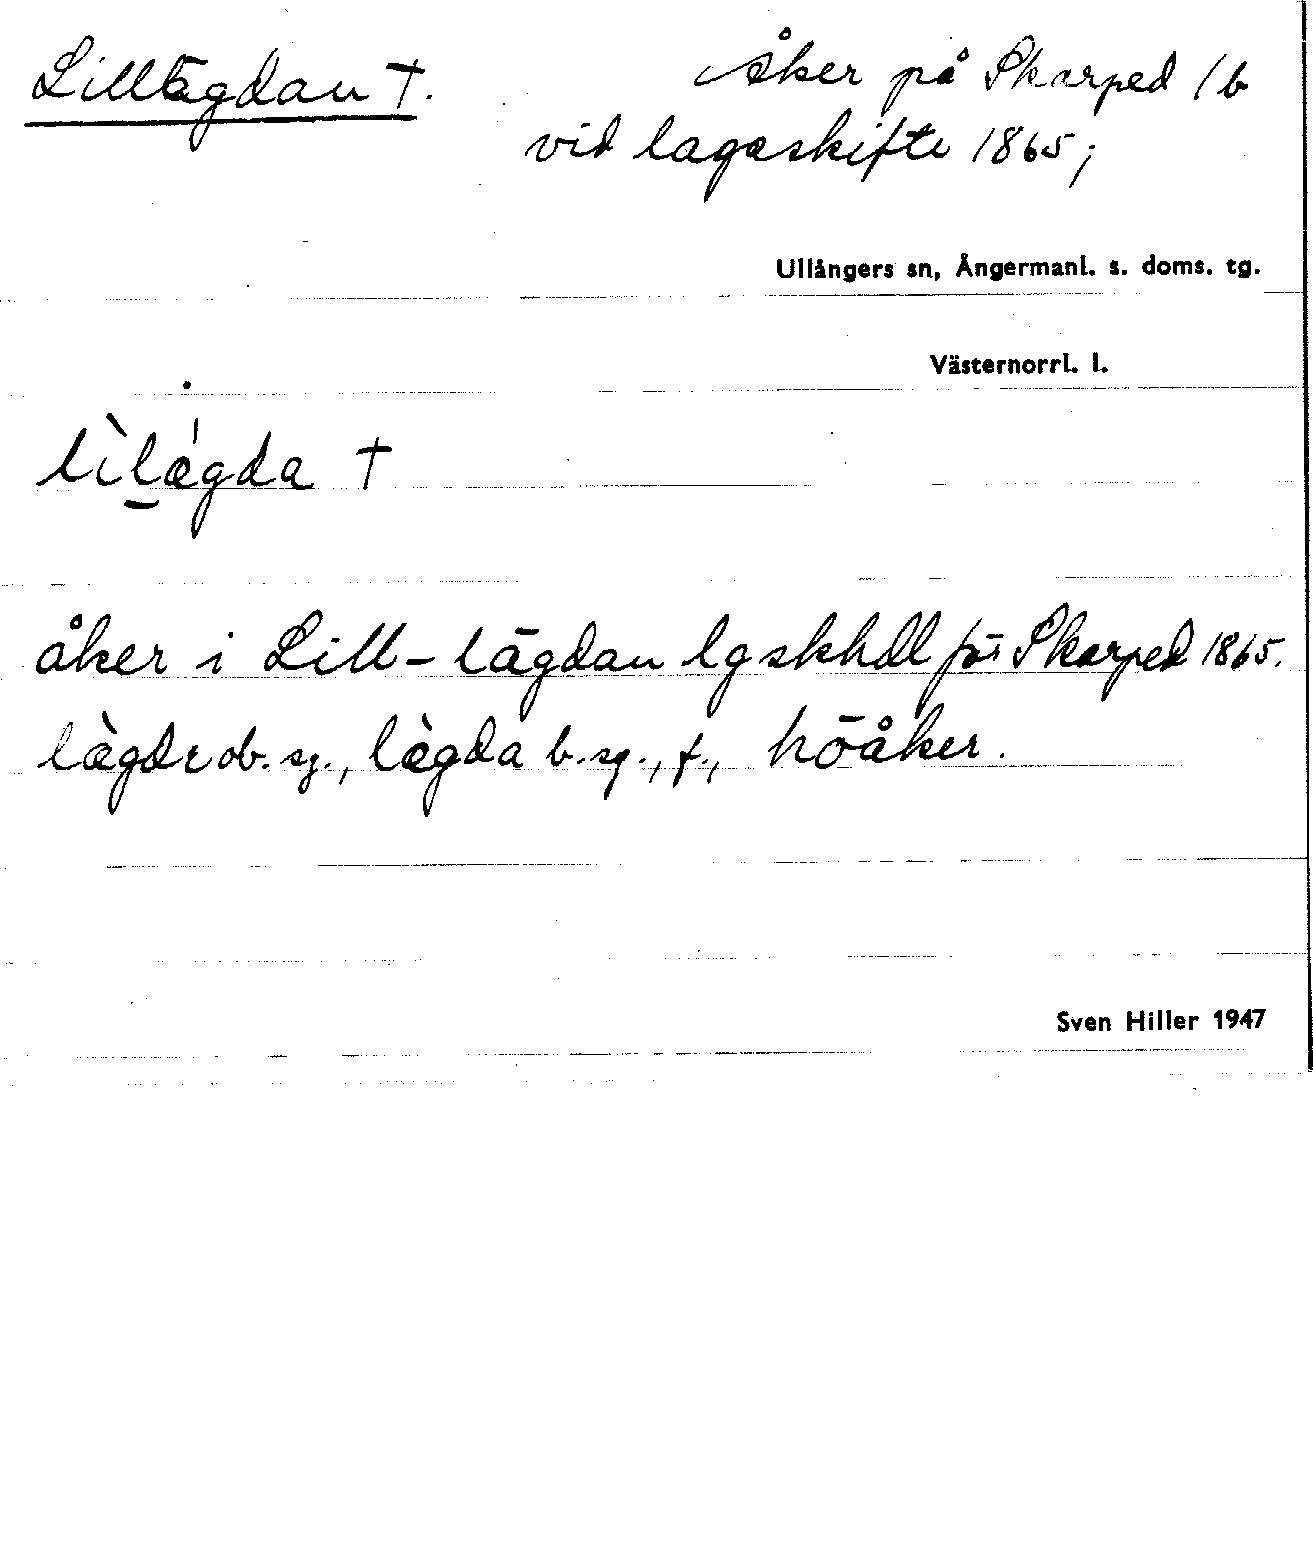 Lillägdan †.
Åker på Skarped 1b
vid lagaskifte 1865;
Ullångers sn, Ångermanl. s. doms. tg.
Västernorrl. l.
lìlǽgda †
åker i Lill-lägdan lgskhdl för Skarped 1865.
ob. sg., lægda b. sg., f., höåker.
Sven Hiller 1947